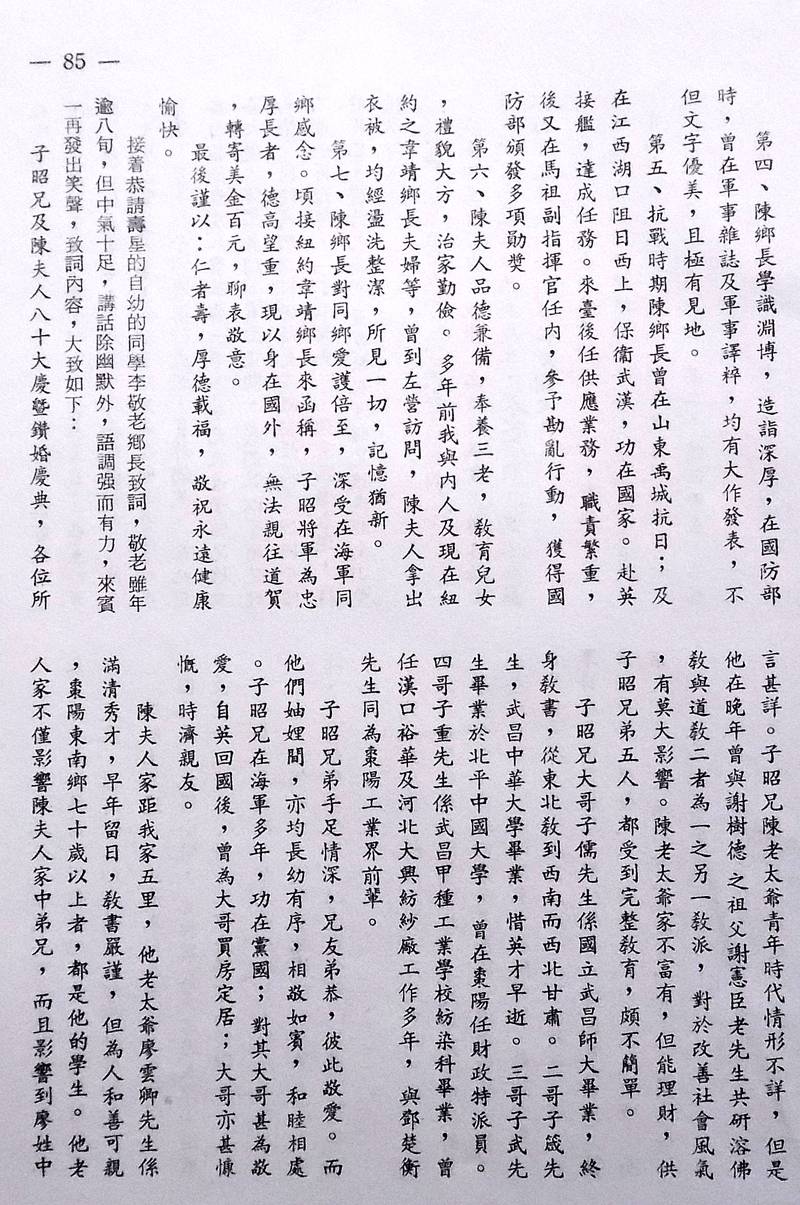 — 85 —
第四、陳鄉長學識淵博，造詣深厚，在國防部
時，曾在軍事雜誌及軍事譯粹，均有大作發表，不
但文字優美，且極有見地。
第五、抗戰時期陳鄉長曾在山東禹城抗日；及
在江西湖口阻日西上，保衞武漢，功在國家。赴英
接艦，達成任務。來臺後任供應業務，職責繁重，
後又在馬祖副指揮官任內，參予勘亂行動，獲得國
防部頒發多項勛獎。
第六、陳夫人品德兼備，奉養三老，敎育兒女
，禮貌大方，治家勤儉。多年前我與內人及現在紐
約之韋靖鄉長夫婦等，曾到左營訪問，陳夫人拿出
衣被，均經盪洗整潔，所見一切，記憶猶新。
第七、陳鄉長對同鄉愛護倍至，深受在海軍同
鄉感念。頃接紐約韋靖鄉長來函稱，子昭將軍為忠
厚長者，德高望重，現以身在國外，無法親往道賀
，轉寄美金百元，聊表敬意。
最後謹以：仁者壽，厚德載福，敬祝永遠健康
愉快。
接着恭請壽星的自幼的同學李敬老鄉長致詞，敬老雖年
逾八旬，但中氣十足，講話除幽默外，語調强而有力，來賓
一再發出笑聲，致詞內容，大致如下：
子昭兄及陳夫人八十大慶曁鑽婚慶典，各位所
言甚詳。子昭兄陳老太爺青年時代情形不詳，但是
他在晚年曾與謝樹德之祖父謝憲臣老先生共研溶佛
敎與道敎二者為一之另一敎派，對於改善社會風氣
，有莫大影響。陳老太爺家不富有，但能理財，供
子昭兄弟五人，都受到完整敎育，頗不簡單。
子昭兄大哥子儒先生係國立武昌師大畢業，終
身敎書，從東北敎到西南而西北甘肅。二哥子箴先
生，武昌中華大學畢業，惜英才早逝。三哥子武先
生畢業於北平中國大學，曾在棗陽任財政特派員。
四哥子重先生係武昌甲種工業學校紡染科畢業，曾
任漢口裕華及河北大興紡紗廠工作多年，與鄧楚衡
先生同為棗陽工業界前輩。
子昭兄弟手足情深，兄友弟恭，彼此敬愛。而
他們妯娌間，亦均長幼有序，相敬如賓，和睦相處
。子昭兄在海軍多年，功在黨國；對其大哥甚為敬
愛，自英回國後，曾為大哥買房定居；大哥亦甚慷
慨，時濟親友。
陳夫人家距我家五里，他老太爺廖雲卿先生係
滿清秀才，早年留日，敎書嚴謹，但為人和善可親
，棗陽東南鄉七十歲以上者，都是他的學生。他老
人家不僅影響陳夫人家中弟兄，而且影響到廖姓中